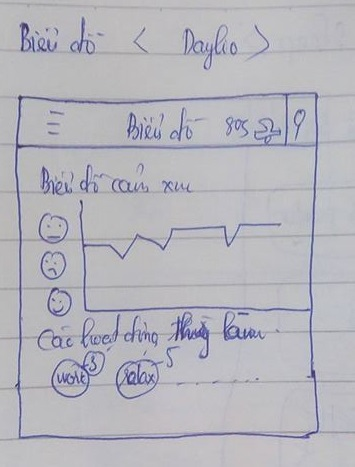 Biểu đồ < Daylio >
Biểu đồ 805
Biểu đồ cảm xúc
Các hoạt động thường làm.
work 3 relax 5 .......